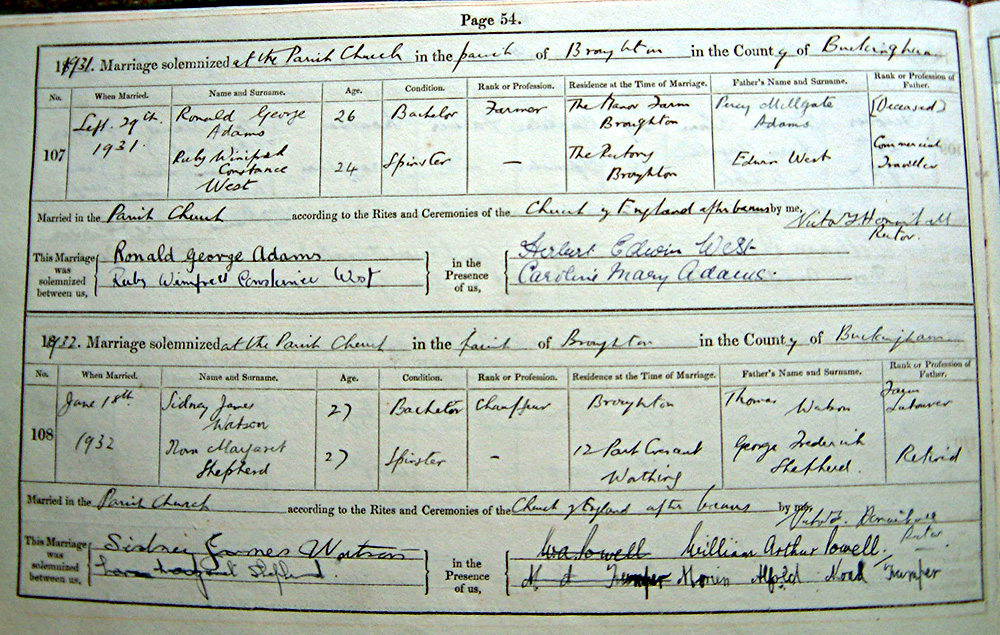 Page 54.
1931. Marriage solemnized at the Parish Church in the parish of Broughton in the County of Buckingham
No. When Married. Name and Surname. Age. Condition. Rank or Profession. Residence at the Time of Marriage. Father's Name and Surname. Rank or Profession of Father.
107 Sept. 29th. 1931. Ronald George Adams 26 Bachelor Farmer The Manor Farm Broughton Percy Millgate Adams (Deceased)
Ruby Winifred Constance West 24 Spinster — The Rectory Broughton Edwin West Commercial Traveller
Married in the Parish Church according to the Rites and Ceremonies of the Church of England after banns by me,
Rector.
This Marriage was solemnized between us,
Ronald George Adams
Ruby Winifred Constance West
in the Presence of us,
Herbert Edwin West
Caroline Mary Adams.
1932. Marriage solemnized at the Parish Church in the parish of Broughton in the County of Buckingham
No. When Married. Name and Surname. Age. Condition. Rank or Profession. Residence at the Time of Marriage. Father's Name and Surname. Rank or Profession of Father.
108 June 18th 1932 Sidney James Watson 27 Bachelor Chauffeur Broughton Thomas Watson Farm Labourer
Nora Margaret Shepherd 27 Spinster — 12 Park Crescent Worthing George Frederick Shepherd. Retired
Married in the Parish Church according to the Rites and Ceremonies of the Church of England after banns by me,
Rector
This Marriage was solemnized between us,
Sidney James Watson
Margaret Shepherd.
in the Presence of us,
W A Powell William Arthur Powell.
Alfred Noad Trumper